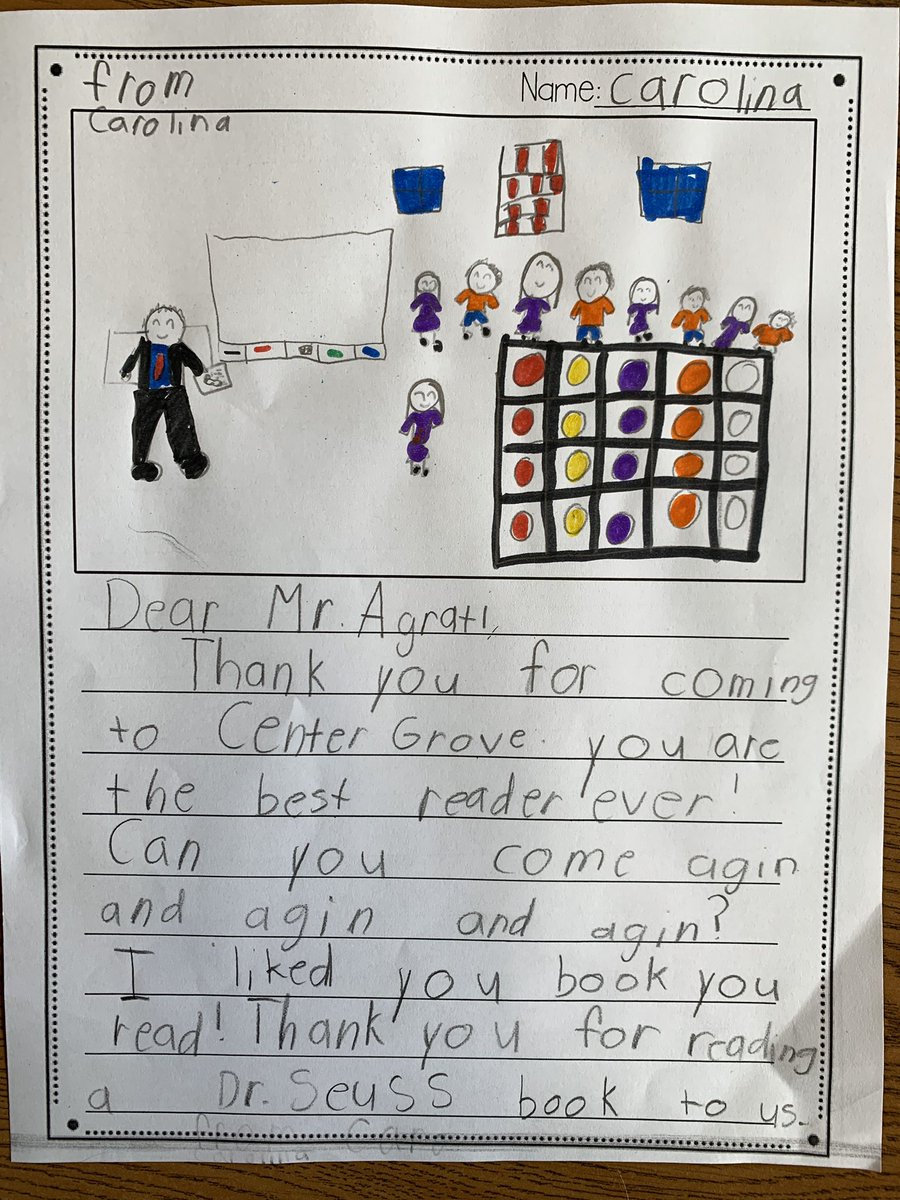 from
Carolina
Name: Carolina
Dear Mr. Agrati,
Thank you for coming
to Center Grove. you are
the best reader ever!
Can you come agin
and agin and agin?
I liked you book you
read! Thank you for reading
a Dr. Seuss book to us.
from Caro